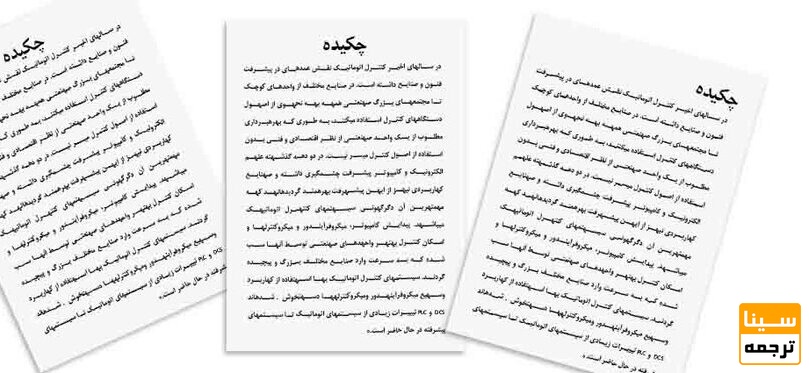 چکیده
در سالهای اخیر کنترل اتوماتیک نقش عمدهای در پیشرفت
فنون و صنایع داشته است. در صنایع مختلف از واحدهای کوچک
تا مجتمعهای بزرگ صنعتی همه به نحوی از اصول
دستگاههای کنترل استفاده میکنند، به طوری که بهرهبرداری
مطلوب از یک واحد صنعتی از نظر اقتصادی و فنی بدون
استفاده از اصول کنترل میسر نیست. در دو دهه گذشته علم
الکترونیک و کامپیوتر پیشرفت چشمگیری داشته و صنایع
کاربردی نیز از این پیشرفت بهرهمند گردیدهاند که
مهمترین آن دگرگونی سیستمهای کنترل اتوماتیک
میباشد. پیدایش کامپیوتر، میکروفرآیندور و میکروکنترلرها و
امکان کنترل بهتر واحدهای صنعتی توسط آنها سبب
شده که به سرعت وارد صنایع مختلف بزرگ و پیچیده
گردند. سیستمهای کنترل اتوماتیک با استفاده از کاربرد
وسیع میکروفرآیندور و میکروکنترلرها دستخوش . شدهاند
DCS و PLC تغییرات زیادی از سیستمهای اتوماتیک تا سیستمهای
پیشرفته در حال حاضر است.»
سینا
ترجمه